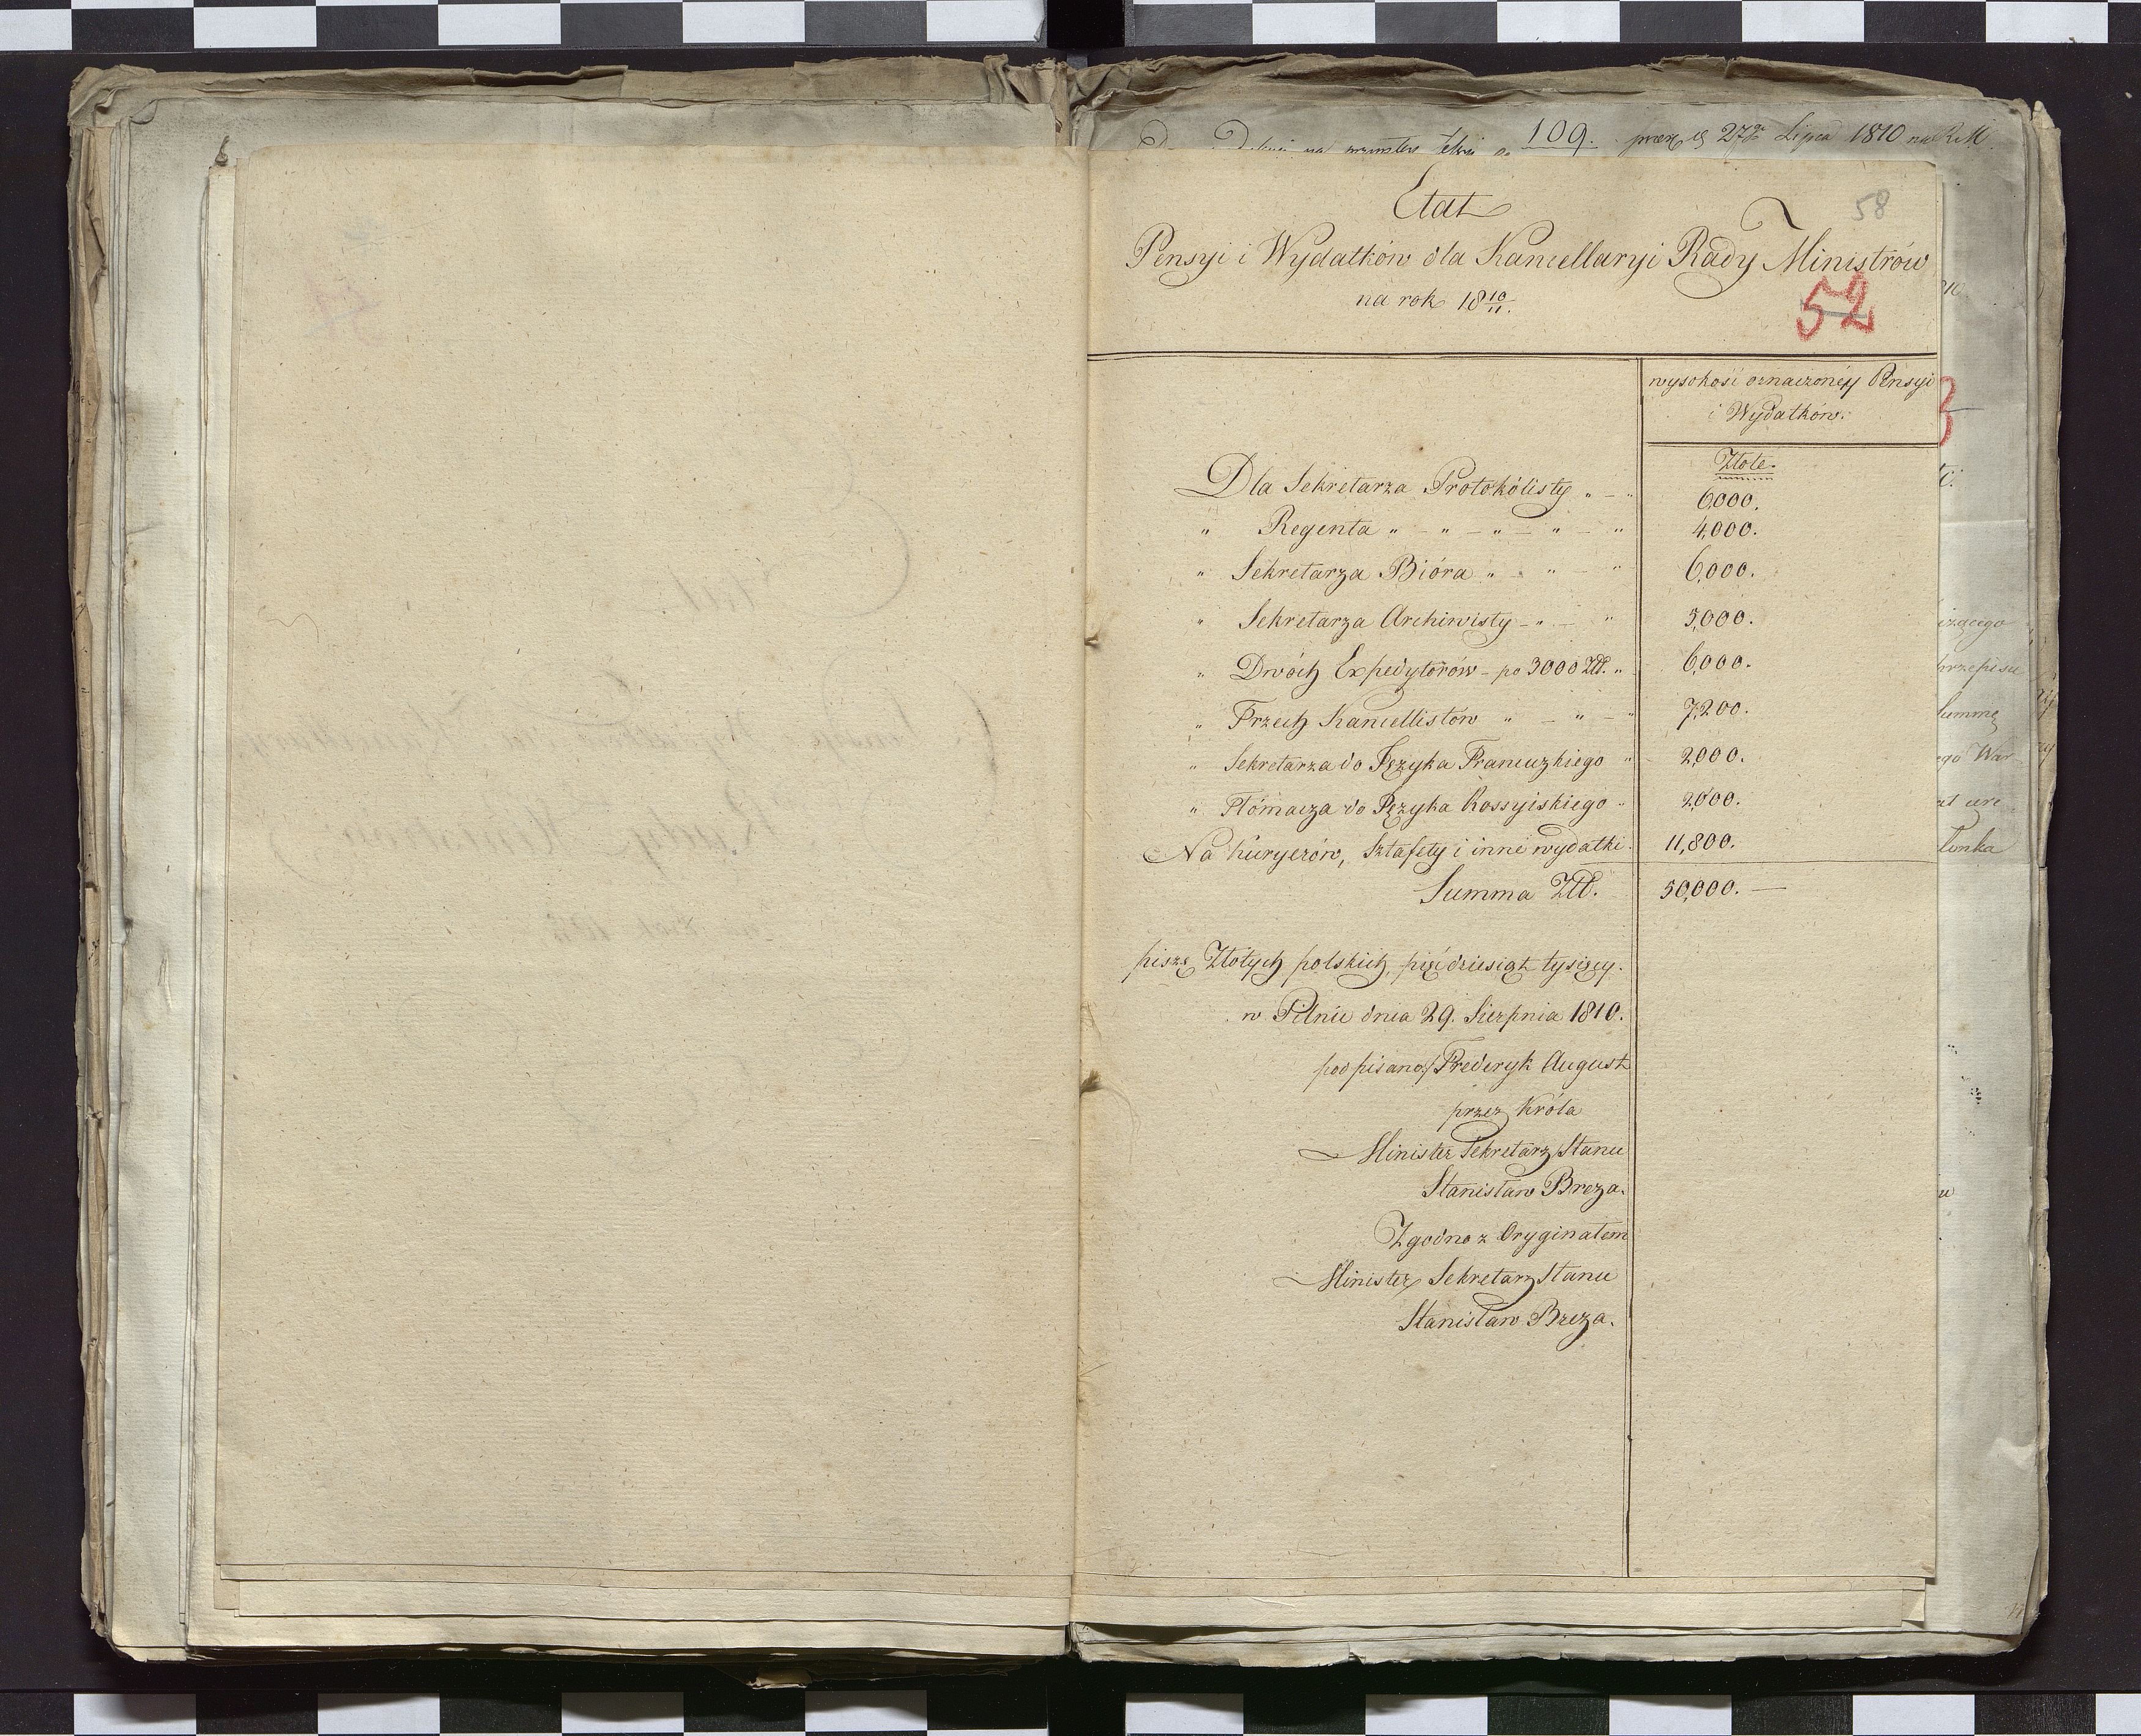 109. 27 Lipca 1810
58
Etat
Pensyi i Wydatków dla Kancellaryi Rady Ministrów
na rok 18 10/11.
52
wysokość oznaczonéy Pensyi
i Wydatków.
Złote.
Dla Sekretarza Protokólisty " — " 6,000.
" Regenta " — " — " — " — " 4,000.
" Sekretarza Bióra " — " — " 6,000.
" Sekretarza Archiwisty — " — " 5,000.
" Dwóch Expedytorów — po 3000 Złł. " 6,000.
" Trzech Kancellistów " — " — " 7,200.
" Sekretarza do Języka Francuzkiego " 2,000.
" Tłómacza do Języka Rossyiskiego " 2,000.
Na kuryerów, Sztafety i inne wydatki. 11,800.
Summa Złł. 50,000. —
piszę Złotych polskich, pięćdziesiąt tysięcy.
w Pilnie dnia 29. Sierpnia 1810.
podpisano/ Frederyk August
przez Króla
Minister Sekretarz Stanu
Stanisław Breza.
Zgodno z Oryginałem
Minister Sekretarz Stanu
Stanisław Breza.